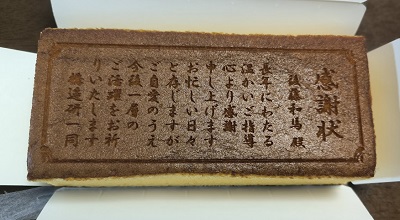 感謝状
後藤和馬 殿
長年にわたる
温かいご指導
心より感謝
申し上げます
お忙しい日々
と存じますが
ご自愛のうえ
今後一層の
ご活躍をお祈
りいたします
修造研一同